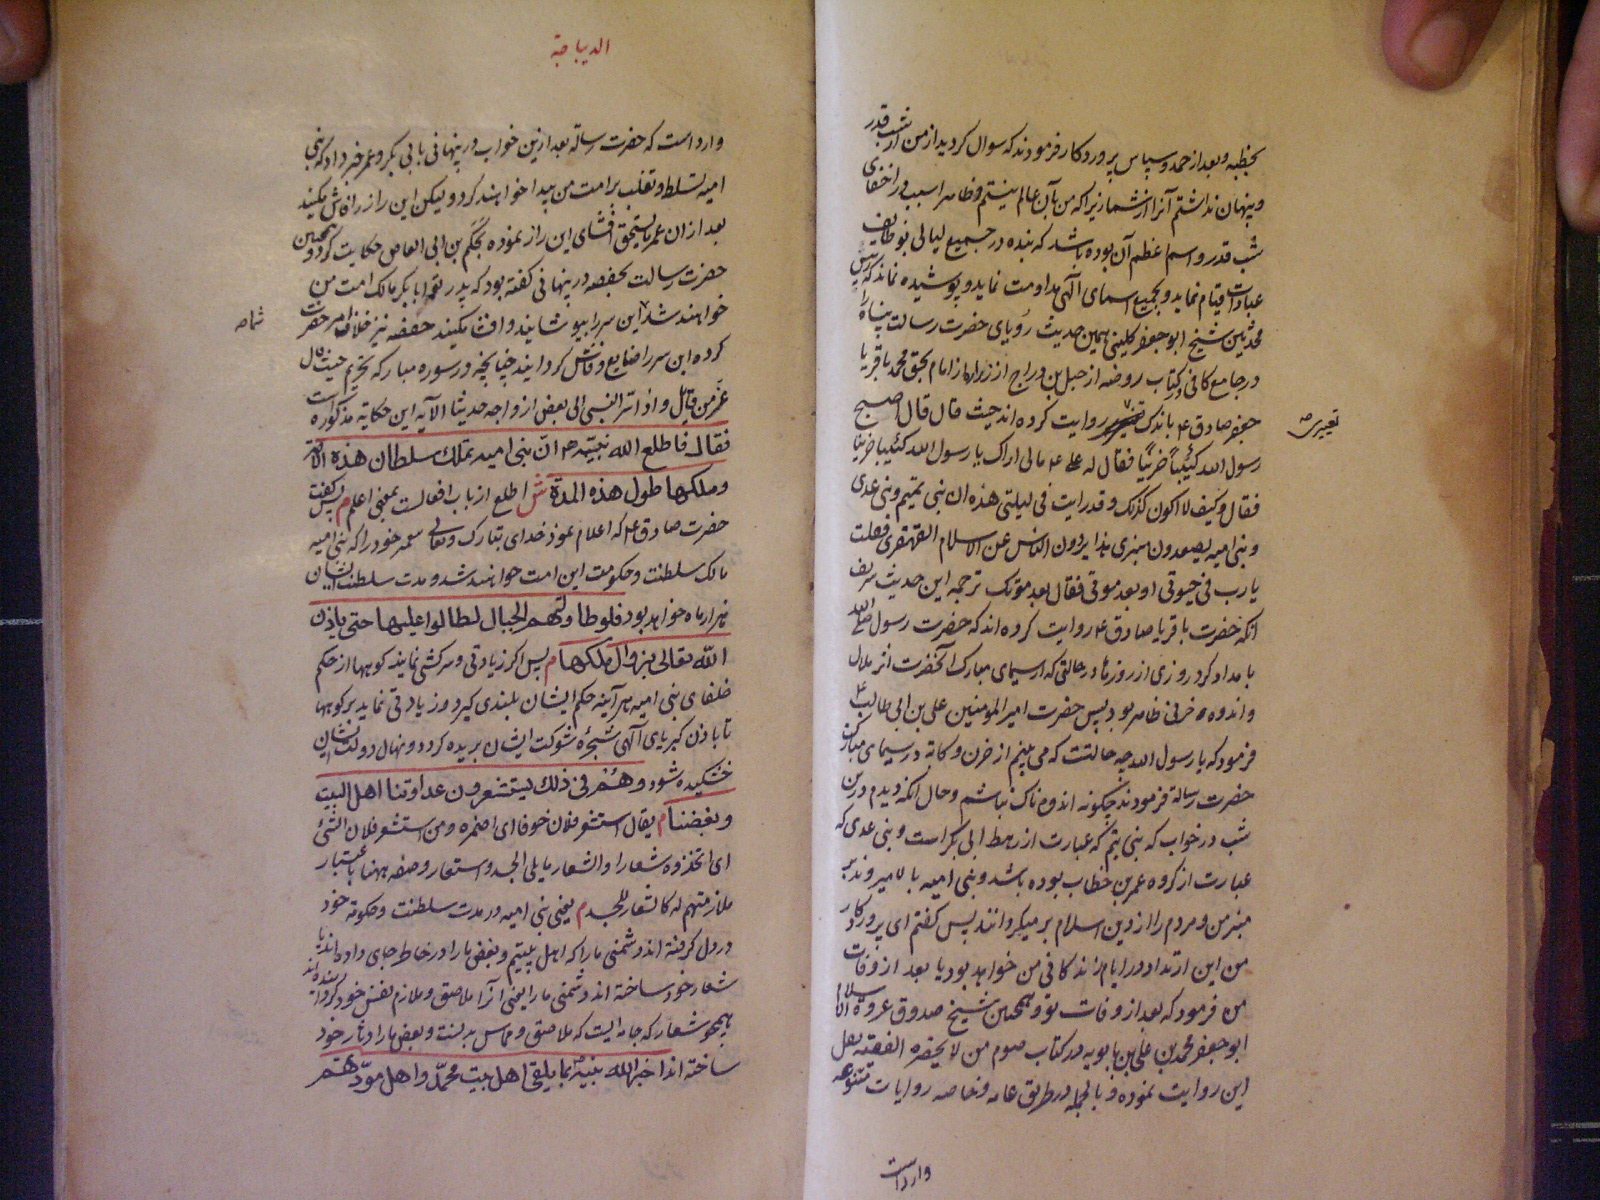 بخطبه وبعد از حمد و سپاس پروردکار فرمودند که سوال کردید از من از شب قدر
و پنهان نداشتم آنرا از شما زیرا که من بآن عالم نیستم و ظاهر اسبب در اخفای
شب قدر و اسم اعظم آن بوده باشد که بنده در جمیع لیالی بوظایف
عبادات قیام نماید و بجمیع اسمای آلهی مداومت نماید و پوشیده نماند که
محدثین شیخ ابو جعفر کلینی همین حدیث رؤیای حضرت رسالت پناه را
در جامع کافی در کتاب روضه از جمیل بن دراج از زراره از امام بحق محمد باقر یا
جعفر صادق ع باندک روایت کرده اند حیث قال قال اصبح
تغییری
رسول الله کئیباً حزیناً فقال له علی ع مالی اراک یا رسول الله کئیبا حزینا
فقال و کیف لا اکون کذلک و قد رایت فی لیلتی هذه ان بنی تمیم و بنی عدی
و بنی امیه یصعدون منبری هذا یردون الناس عن الاسلام القهقری فقلت
یا رب فی حیوتی او بعد موتی فقال بعد موتک ترجمه این حدیث شریف
انکه حضرت باقر یا صادق ع روایت کرده اند که حضرت رسول صلی الله
بامداد کرد روزی از روزها در حالتی که از سیمای مبارک آنحضرت اثر ملال
و اندوه و حزنی ظاهر بود پس حضرت امیر المومنین علی بن ابی طالب ع
فرمود که یا رسول الله چه حالتست که می بینم از حزن و کابة در سیمای مبارکت
حضرت رسالة فرمودند چکونه اندوه ناک نباشم و حال انکه دیدم درین
شب در خواب که بنی تیم که عبارت از رهط ابی بکر است و بنی عدی که
عبارت از کروه عمر بن خطاب بوده باشد و بنی امیه بالا میروند بر
منبر من و مردم را از دین اسلام بر میکردانند پس کفتم ای پرور کار
من این ارتداد در ایام زندکانی من خواهد بود یا بعد از وفات
من فرمود که بعد از وفات تو و همچنین شیخ صدوق عروة الاسلام
ابو جعفر محمد بن علی بن بابویه در کتاب صوم من لا یحضره الفقیه نقل
این روایت نموده و بالجمله در طریق عامه و خاصه روایات متنوعه
وارد است
الدیباجة
وارد است که حضرت رسالة بعد ازین خواب در پنهانی با ابی بکر و عمر خبر داد که بنی
امیه تسلط و تغلب بر امت من پیدا خواهند کرد و لیکن این راز را فاش مکنید
بعد از ان عمر افشای این راز نموده بحکم بن ابی العاص حکایت کرد و همچنین
حضرت رسالت بحفصه در پنهانی کفته بود که پدر تو با ابا بکر مالک امت من
خواهند شد این سر را بپوشانید و افشا مکنید حفصه نیز خلاف امر حضرت
شماه
کرده این سر را ضایع و فاش کردانید چنانچه در سوره مبارکه تحریم حیث قال
عز من قائل و اذ اسر النبی الی بعض ازواجه حدیثا الآیه این حکایه مذکوره است
فقال فاطلع الله نبیّه ع انّ بنی امیه تملك سلطان هذه الامة
و ملکها طول هذه المدة ش اطلع از باب افعالست بمعنی اعلم م پس کفت
حضرت صادق ع که اعلام نمود خدای تبارک و تعالی پیغمبر خود را که بنی امیه
مالک سلطنت و حکومت این امت خواهند شد و مدت سلطنت ایشان
هزار ماه خواهد بود فلو طاولتهم الجبال لطالوا علیها حتی یاذن
الله تعالی بزوال ملکها م پس اکر زیادتی و سرکشی نمایند کوهها از حکم
خلفای بنی امیه هر آینه حکم ایشان بلندی کیرد و زیادتی نماید بر کوهها
تا باذن کبریای آلهی شجره شوکت ایشان بریده کردد و نهال دولت ایشان
خشکیده شود و هم فی ذلك یستشعرون عداوتنا اهل البیت
و بغضنا م یقال استشعر فلان خوفا ای اضمره و من استشعر فلان الشئ
ای اتخذه شعارا و الشعار ما یلی الجسد و استعاره صفه ههنا باعتبار
ملازمتهم له کالشعار للجسد م یعنی بنی امیه در مدت سلطنت و حکومة خود
در دل کرفته اند دشمنی ما را که اهل بیتیم و بغض ما را در خاطر جای داده اند یا
شعار خود ساخته اند دشمنی ما را یعنی آنرا ملاصق و ملازم نفس خود کردانیده اند
همچو شعار که جامه ایست که ملاصق و مماس بدنست و بغض ما را دثار خود
ساخته اند اخبر الله نبیه بما یلقی اهل بیت محمّد و اهل مودّتهم